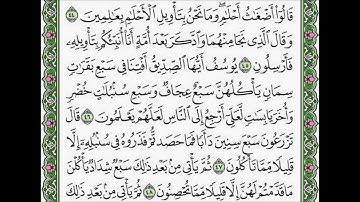 قَالُوٓا۟ أَضْغَـٰثُ أَحْلَـٰمٍ ۖ وَمَا نَحْنُ بِتَأْوِيلِ ٱلْأَحْلَـٰمِ بِعَـٰلِمِينَ ٤٤
وَقَالَ ٱلَّذِى نَجَا مِنْهُمَا وَٱدَّكَرَ بَعْدَ أُمَّةٍ أَنَا۠ أُنَبِّئُكُم بِتَأْوِيلِهِۦ
فَأَرْسِلُونِ ٤٥ يُوسُفُ أَيُّهَا ٱلصِّدِّيقُ أَفْتِنَا فِى سَبْعِ بَقَرَٰتٍ
سِمَانٍ يَأْكُلُهُنَّ سَبْعٌ عِجَافٌ وَسَبْعِ سُنۢبُلَـٰتٍ خُضْرٍ
وَأُخَرَ يَابِسَـٰتٍ لَّعَلِّىٓ أَرْجِعُ إِلَى ٱلنَّاسِ لَعَلَّهُمْ يَعْلَمُونَ ٤٦ قَالَ
تَزْرَعُونَ سَبْعَ سِنِينَ دَأَبًا فَمَا حَصَدتُّمْ فَذَرُوهُ فِى سُنۢبُلِهِۦٓ إِلَّا
قَلِيلًا مِّمَّا تَأْكُلُونَ ٤٧ ثُمَّ يَأْتِى مِنۢ بَعْدِ ذَٰلِكَ سَبْعٌ شِدَادٌ يَأْكُلْنَ
مَا قَدَّمْتُمْ لَهُنَّ إِلَّا قَلِيلًا مِّمَّا تُحْصِنُونَ ٤٨ ثُمَّ يَأْتِى مِنۢ بَعْدِ ذَٰلِكَ